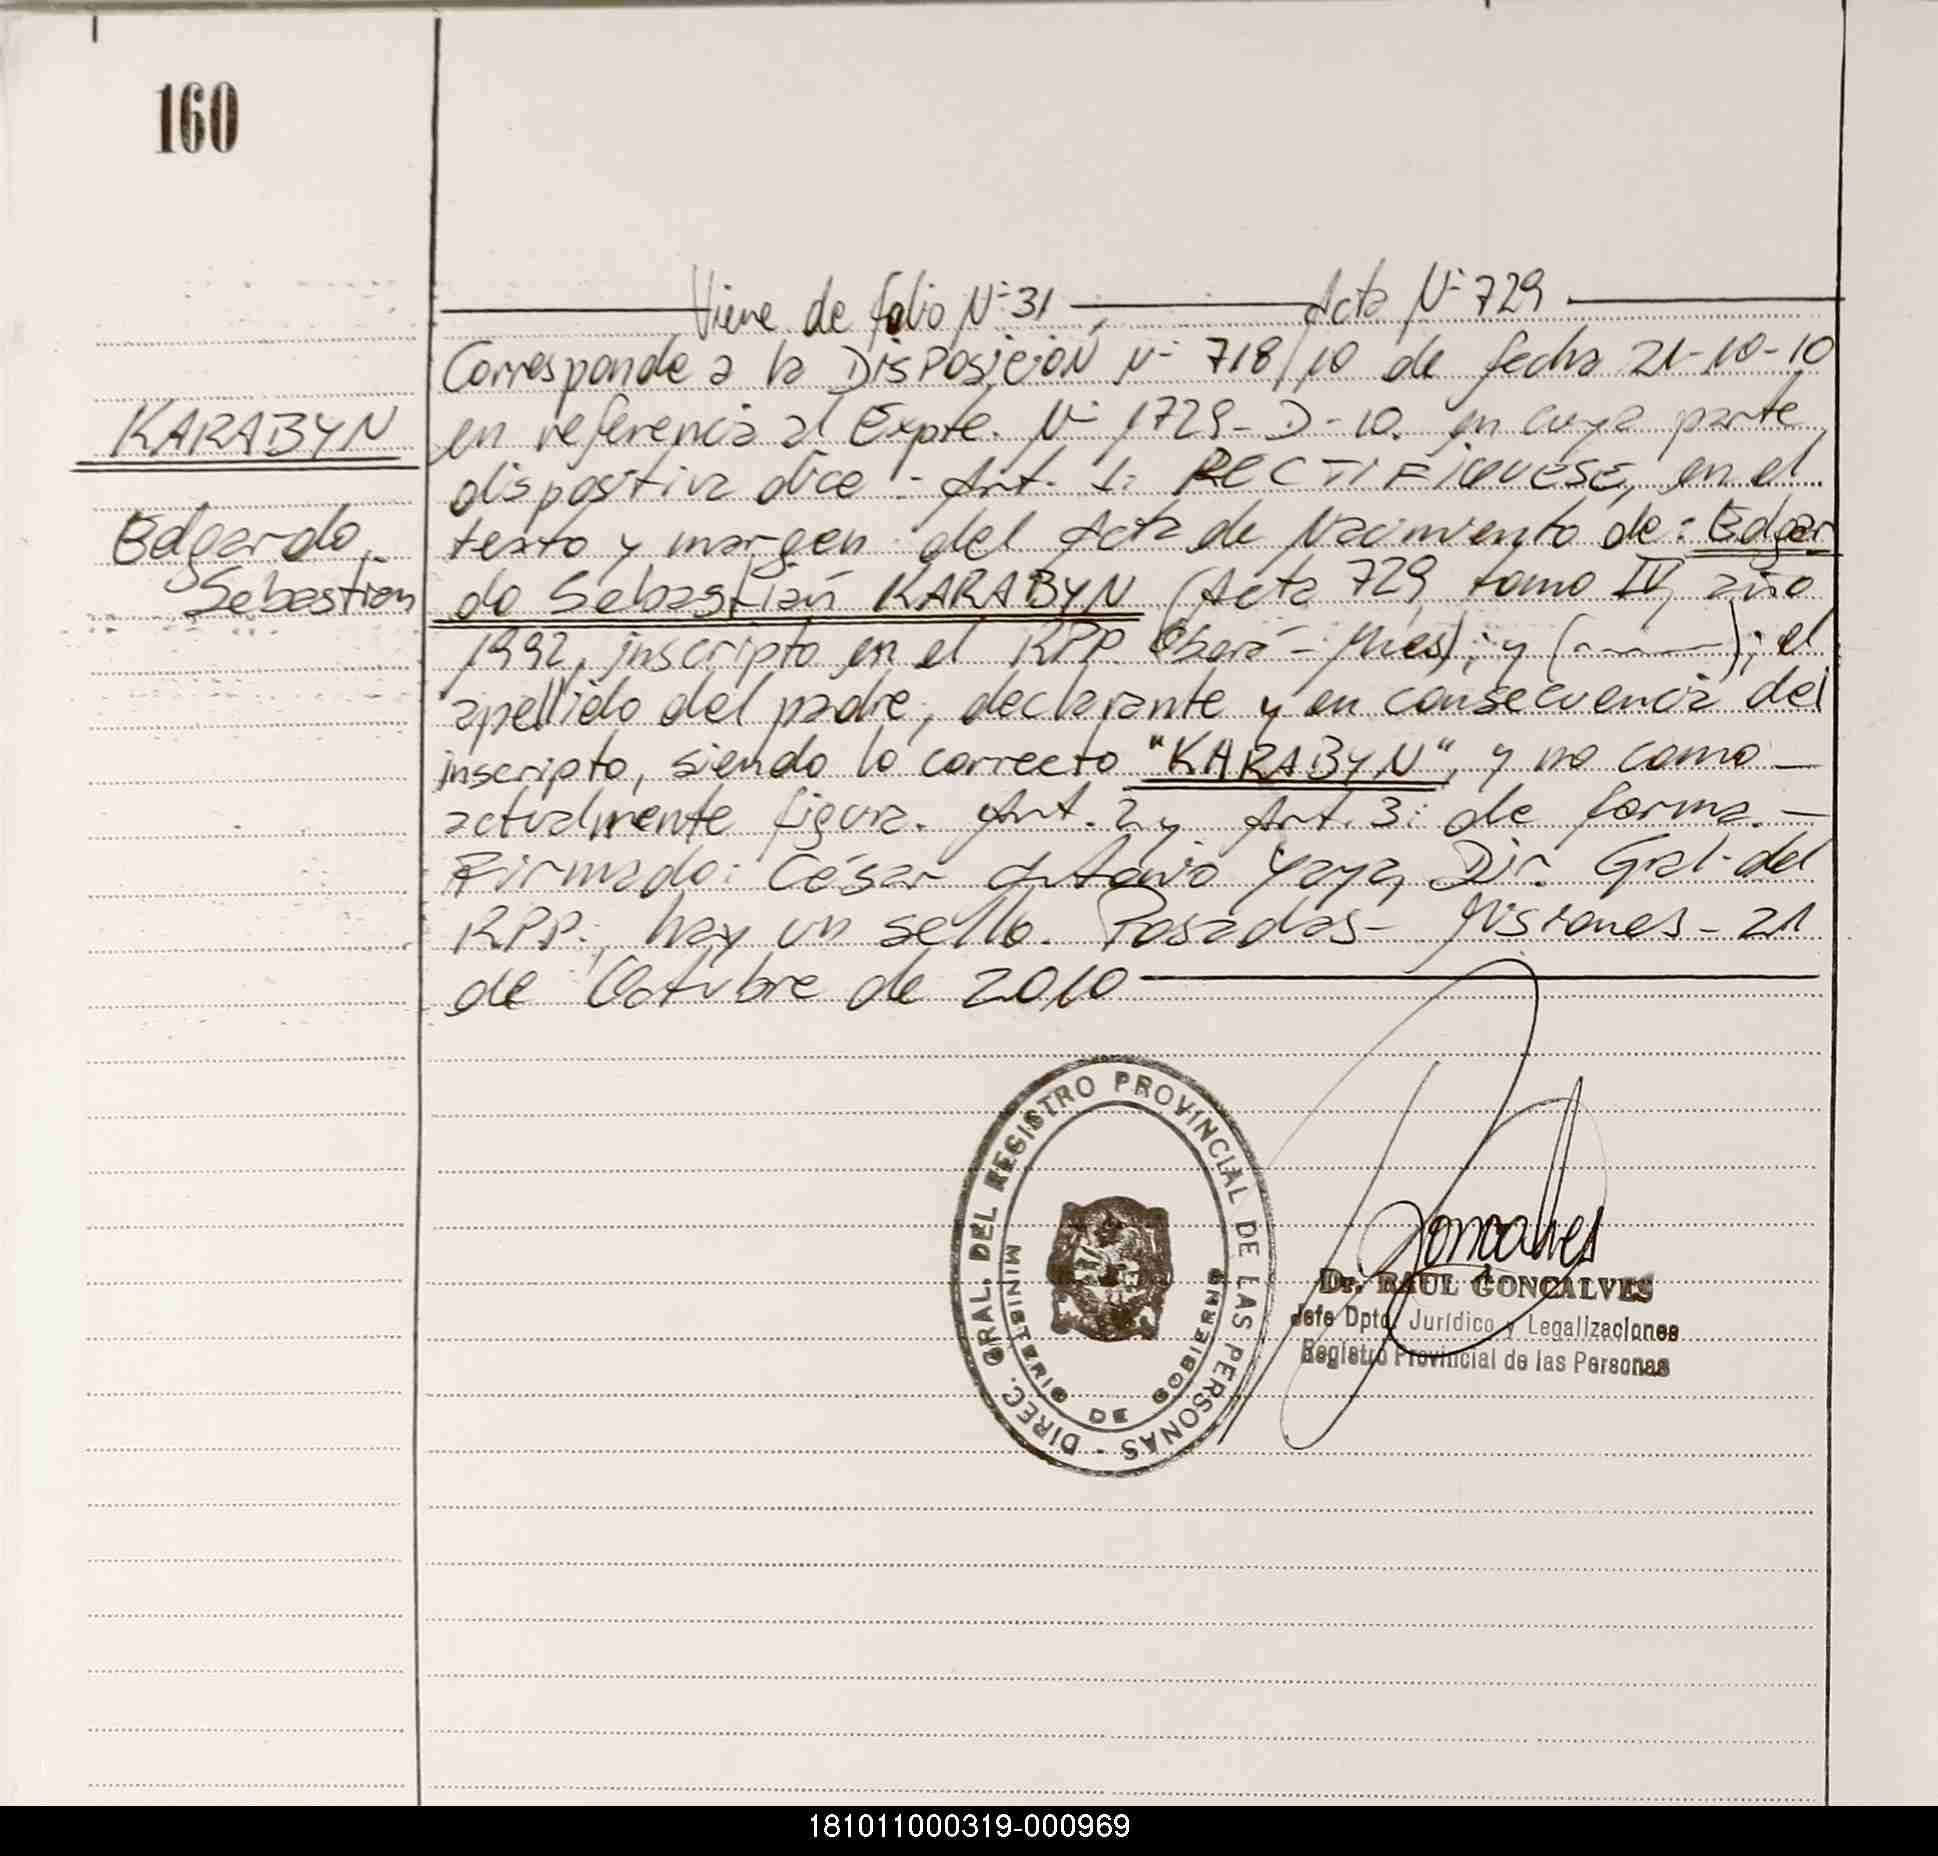 160
Viene de folio Nº 31, Acta Nº 729
KARABYN
Edgardo
Sebastián
Corresponde a la DISPOSICIÓN Nº 718/10 de fecha 21-10-10
en referencia al Expte. Nº 1729-D-10. en cuya parte
dispositiva dice: Art. 1: RECTIFIQUESE, en el
texto y margen del Acta de Nacimiento de: Edgar
do Sebastián KARABYN (Acta 729, tomo IV, año
1992, inscripto en el RPP. Oberá - Mnes); y (------); el
apellido del padre, declarante y en consecuencia del
inscripto, siendo lo correcto "KARABYN", y no como
actualmente figura. Art. 2 y Art. 3: de forma.-
Firmado: César Antonio Yaya, Dir. Gral. del
RPP.; hay un sello. Posadas - Misiones - 21
de Octubre de 2010
DIREC. GRAL. DEL REGISTRO PROVINCIAL DE LAS PERSONAS -
MINISTERIO DE GOBIERNO
Goncalves
Dr. RAUL GONCALVES
Jefe Dpto. Jurídico y Legalizaciones
Registro Provincial de las Personas
181011000319-000969